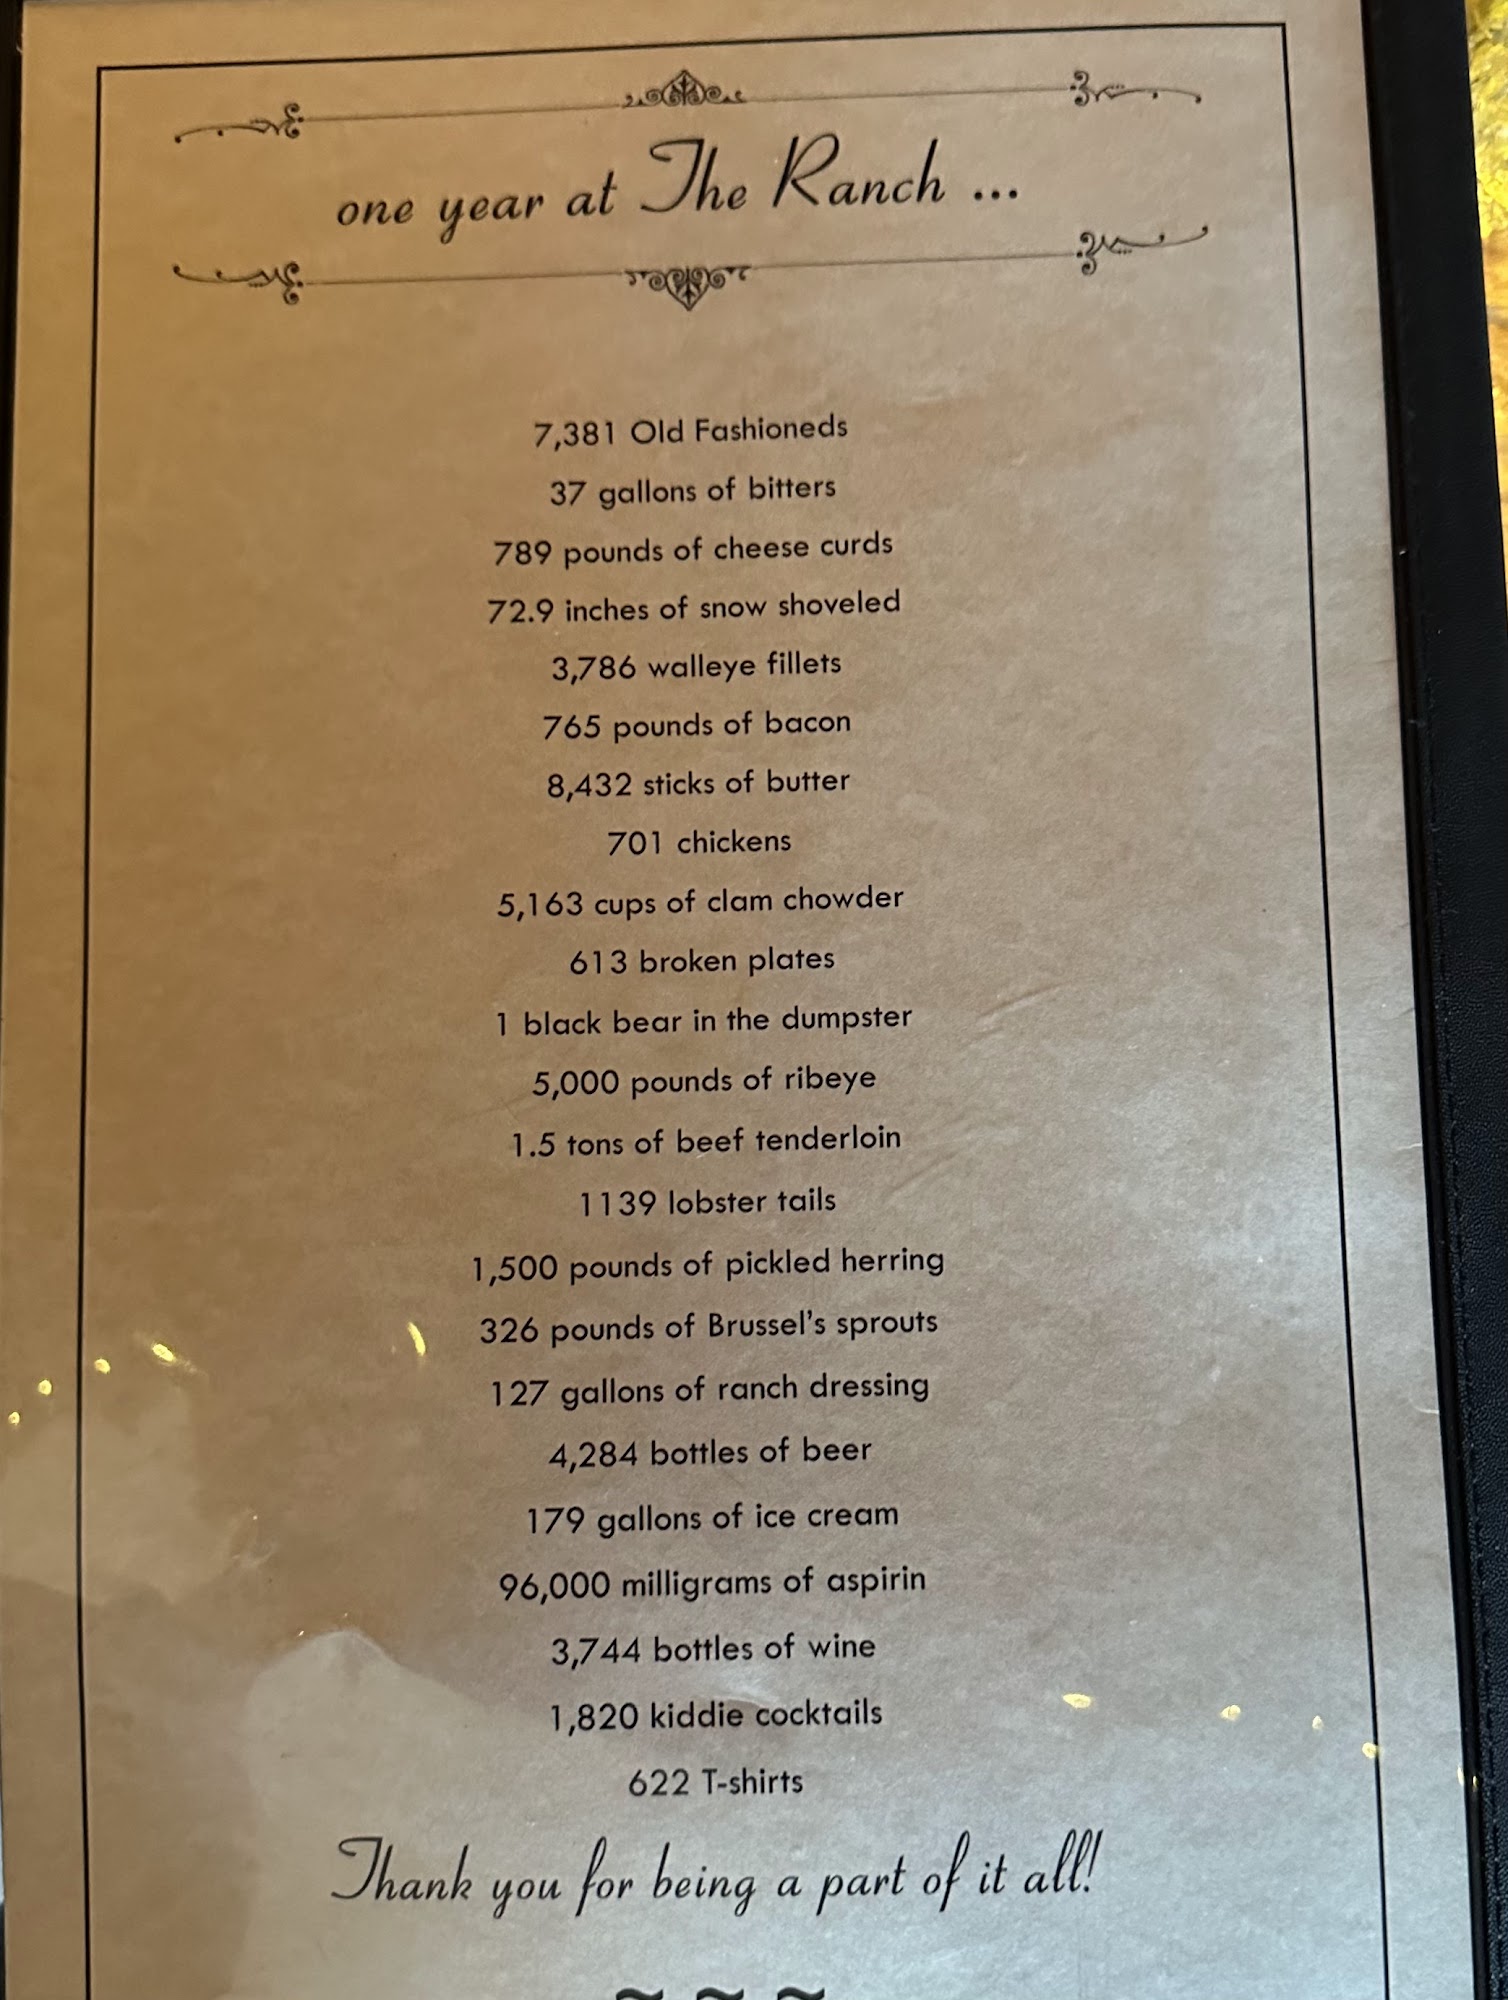 one year at The Ranch ...
7,381 Old Fashioneds
37 gallons of bitters
789 pounds of cheese curds
72.9 inches of snow shoveled
3,786 walleye fillets
765 pounds of bacon
8,432 sticks of butter
701 chickens
5,163 cups of clam chowder
613 broken plates
1 black bear in the dumpster
5,000 pounds of ribeye
1.5 tons of beef tenderloin
1139 lobster tails
1,500 pounds of pickled herring
326 pounds of Brussel's sprouts
127 gallons of ranch dressing
4,284 bottles of beer
179 gallons of ice cream
96,000 milligrams of aspirin
3,744 bottles of wine
1,820 kiddie cocktails
622 T-shirts
Thank you for being a part of it all!
~ ~ ~